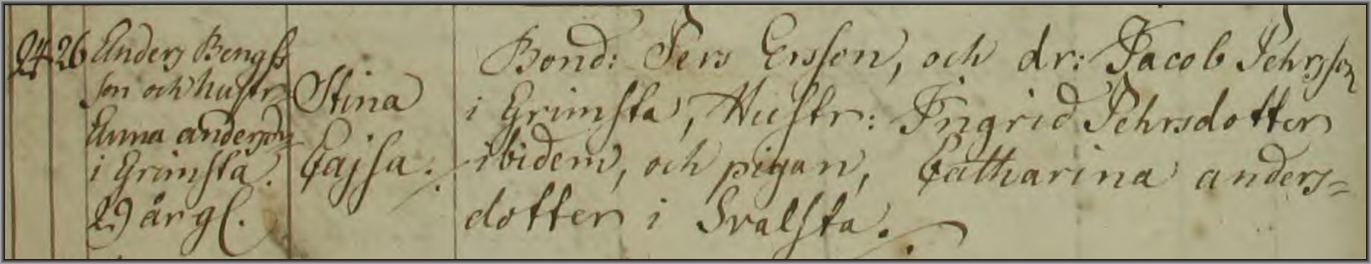 24 26 Anders Bengts
son och hustr:
Anna andersdr
i Grimsta.
29 år gl.
Stina
Cajsa.
Bond: Pers Ersson, och dr: Jacob Pehrsson
i Grimsta, Hustr: Ingrid Pehrsdotter
ibidem, och pigan, Catharina anders=
dotter i Svalsta.